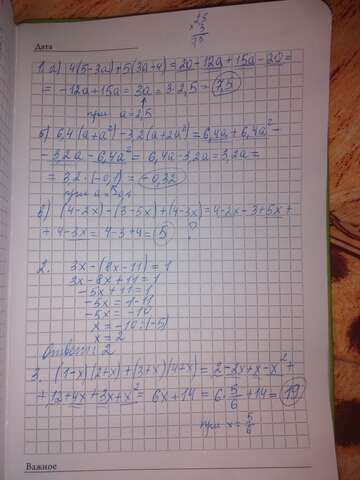 25
× 3
75
Дата
1. а) 4(5-3a)+5(3a-4)=20-12a+15a-20=
= -12a+15a=3a=3·2,5=7,5
при a=2,5
б) 6,4(a+a²)-3,2(a+2a²)=6,4a+6,4a²-
-3,2a-6,4a²=6,4a-3,2a=3,2a=
= 3,2·(-0,1)=-0,32
в) (4-2x)-(3-5x)+(4-3x)=4-2x-3+5x+
+ 4-3x=4-3+4=5 ?
2. 3x-(8x-11)=1
3x-8x+11=1
-5x+11=1
-5x=1-11
-5x=-10
x=-10:(-5)
x=2
Ответ: 2
3. (1-x)(2+x)+(3+x)(4+x)=2-2x+x-x²+
+12+4x+3x+x²=6x+14=6·5/6+14=19
при x=5/6
Важное